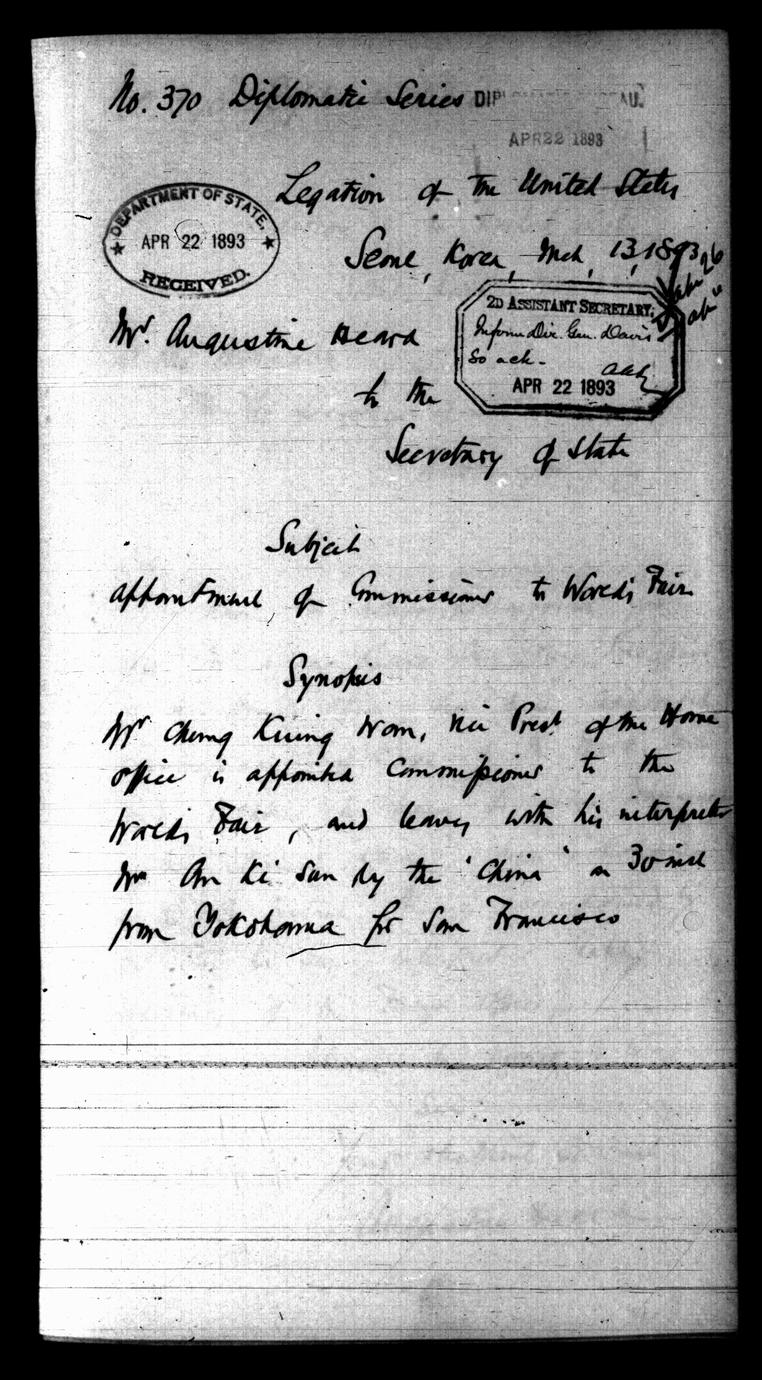 No. 370 Diplomatic Series
DIPLOMATIC BUREAU.
APR 22 1893
Legation of the United States
DEPARTMENT OF STATE,
APR 22 1893
RECEIVED.
Seoul, Korea, Mch. 13, 1893
Mr. Augustine Heard
2D ASSISTANT SECRETARY.
Inform Dir. Gen. Davis
So ack.
APR 22 1893
to the
Secretary of State
Subject
Appointment of Commissioner to World's Fair
Synopsis
Mr Cheng Kuing Won, Vice Prest of the Home
Office is appointed Commissioner to the
World's Fair, and leaves with his interpreter
Mr An Ki Sun by the 'China' on 30 inst
from Yokohama for San Francisco